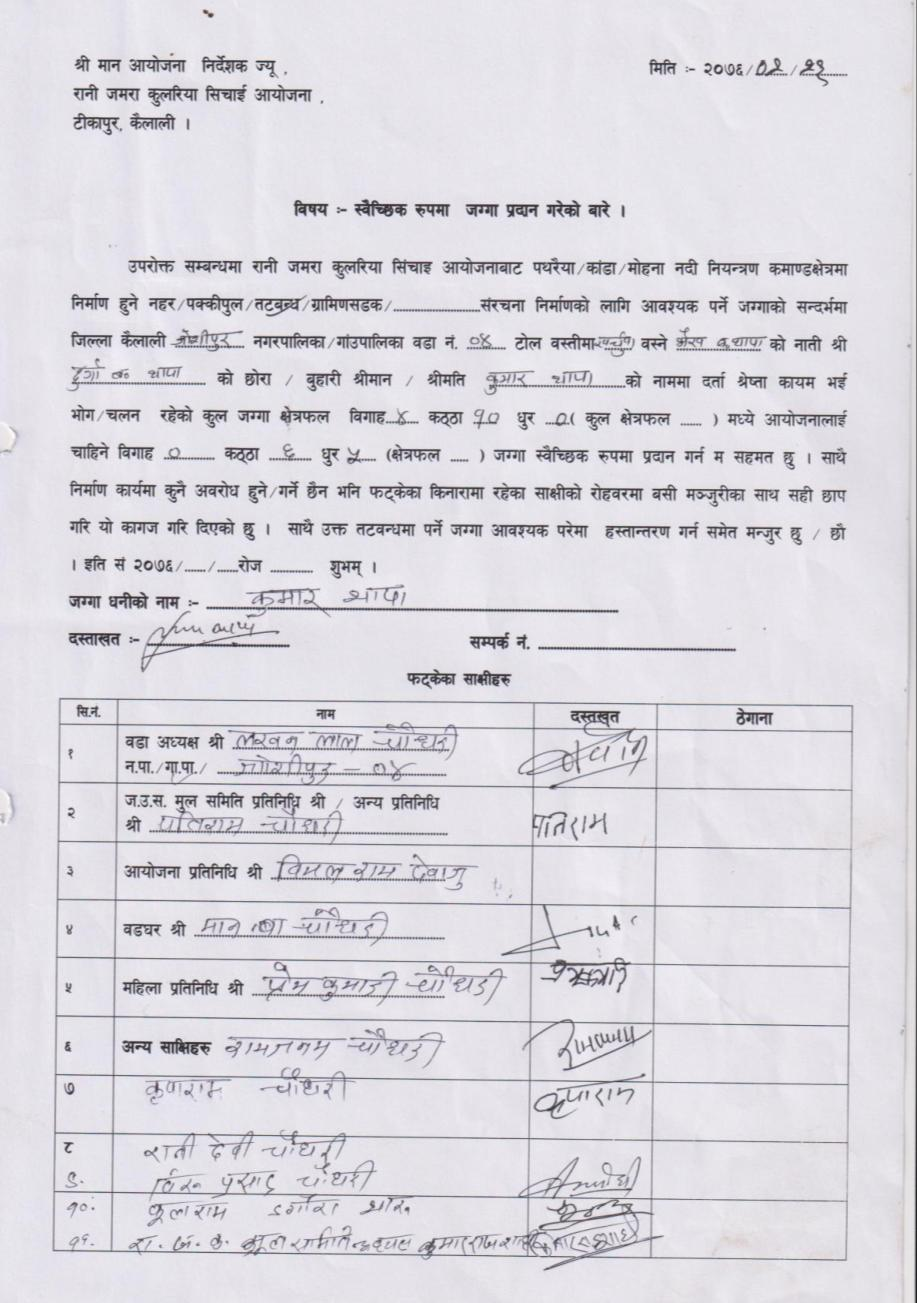 श्री मान आयोजना निर्देशक ज्यू ,
मिति :- २०७६/०२/२३
रानी जमरा कुलरिया सिचाई आयोजना ,
टीकापुर, कैलाली ।
विषय :- स्वैच्छिक रुपमा जग्गा प्रदान गरेको बारे ।
उपरोक्त सम्बन्धमा रानी जमरा कुलरिया सिंचाइ आयोजनाबाट पथरैया/कांडा/मोहना नदी नियन्त्रण कमाण्डक्षेत्रमा
निर्माण हुने नहर/पक्कीपुल/तटबन्ध/ग्रामिणसडक/....................संरचना निर्माणको लागि आवश्यक पर्ने जग्गाको सन्दर्भमा
जिल्ला कैलाली जोशीपुर नगरपालिका/गांउपालिका वडा नं. ०४ टोल वस्तीमा वस्ने को नाती श्री
दुर्गा ब. थापा को छोरा / बुहारी श्रीमान / श्रीमति कुमार थापा को नाममा दर्ता श्रेष्ता कायम भई
भोग/चलन रहेको कुल जग्गा क्षेत्रफल विगाह ४ कठ्ठा १० धुर ०( कुल क्षेत्रफल ...... ) मध्ये आयोजनालाई
चाहिने विगाह ० कठ्ठा ६ धुर ५ (क्षेत्रफल ..... ) जग्गा स्वैच्छिक रुपमा प्रदान गर्न म सहमत छु । साथै
निर्माण कार्यमा कुनै अवरोध हुने/गर्ने छैन भनि फट्केका किनारामा रहेका साक्षीको रोहवरमा बसी मञ्जुरीका साथ सही छाप
गरि यो कागज गरि दिएको छु । साथै उक्त तटवन्धमा पर्ने जग्गा आवश्यक परेमा हस्तान्तरण गर्न समेत मन्जुर छु / छौ
। इति सं २०७६/...../.....रोज ........... शुभम् ।
जग्गा धनीको नाम :- कुमार थापा
दस्ताखत :-
सम्पर्क नं. ..............................
फट्केका साक्षीहरु
सि.नं. नाम दस्तखुत ठेगाना
१ वडा अध्यक्ष श्री लखन लाल चौधरी
न.पा./गा.पा./ जोशीपुर - ०४
२ ज.उ.स. मुल समिति प्रतिनिधि श्री / अन्य प्रतिनिधि
श्री पतिराम चौधरी पतिराम
३ आयोजना प्रतिनिधि श्री विमल राम देवाजु
४ वडघर श्री मान चौधरी
५ महिला प्रतिनिधि श्री प्रेम कुमारी चौधरी
६ अन्य साक्षिहरु रामजनम चौधरी
७ कृपाराम चौधरी कृपाराम
८ रानी देवी चौधरी
९. प्रसाद चौधरी
१०. फूलराम डगौरा थारु
११. रा. ज. कु. मूल समिति